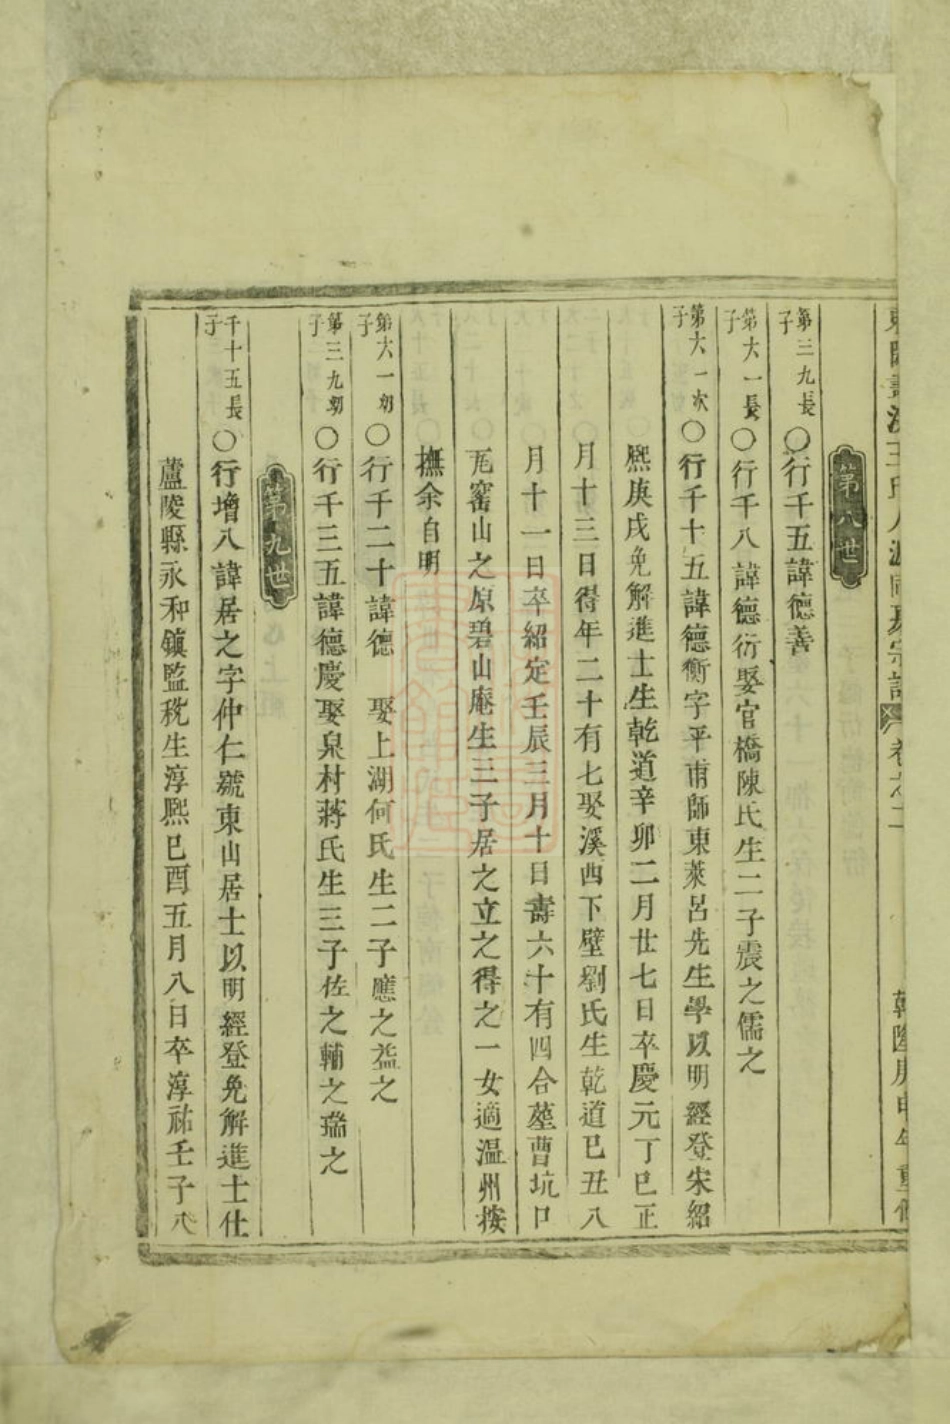 王氏
宗譜
卷之二
乾隆庚申年重修
第八世
第三九長子〇行千五諱德善
第六一長子〇行千八諱德衍娶官橋陳氏生二子震之儒之
第六一次子〇行千十五諱德衡字平甫師東萊呂先生學以明經登宋紹
熈庚戌免解進士生乾道辛卯二月廿七日卒慶元丁巳正
月十三日得年二十有七娶溪西下壁劉氏生乾道己丑八
月十一日卒紹定壬辰三月十日壽六十有四合塟曹坑口
瓦窰山之原碧山庵生三子居之立之得之一女適温州按
撫余自明
第六一幼子〇行千二十諱德 娶上湖何氏生二子應之益之
第三九幼子〇行千三五諱德慶娶泉村蔣氏生三子佐之輔之瑞之
第九世
千十五長子〇行增八諱居之字仲仁號東山居士以明經登免解進士仕
蘆陵縣永和鎮監稅生淳熈己酉五月八日卒淳祐壬子八